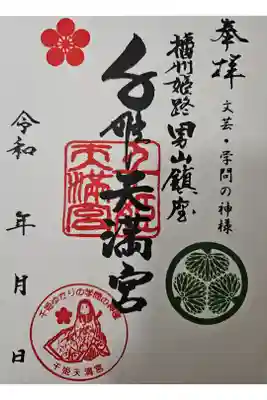 奉拝
文芸・学問の神様
播州姫路男山鎮座
千姫天満宮
千姫
天満宮
令和　年　月　日
千姫ゆかりの学問の神様
千姫天満宮